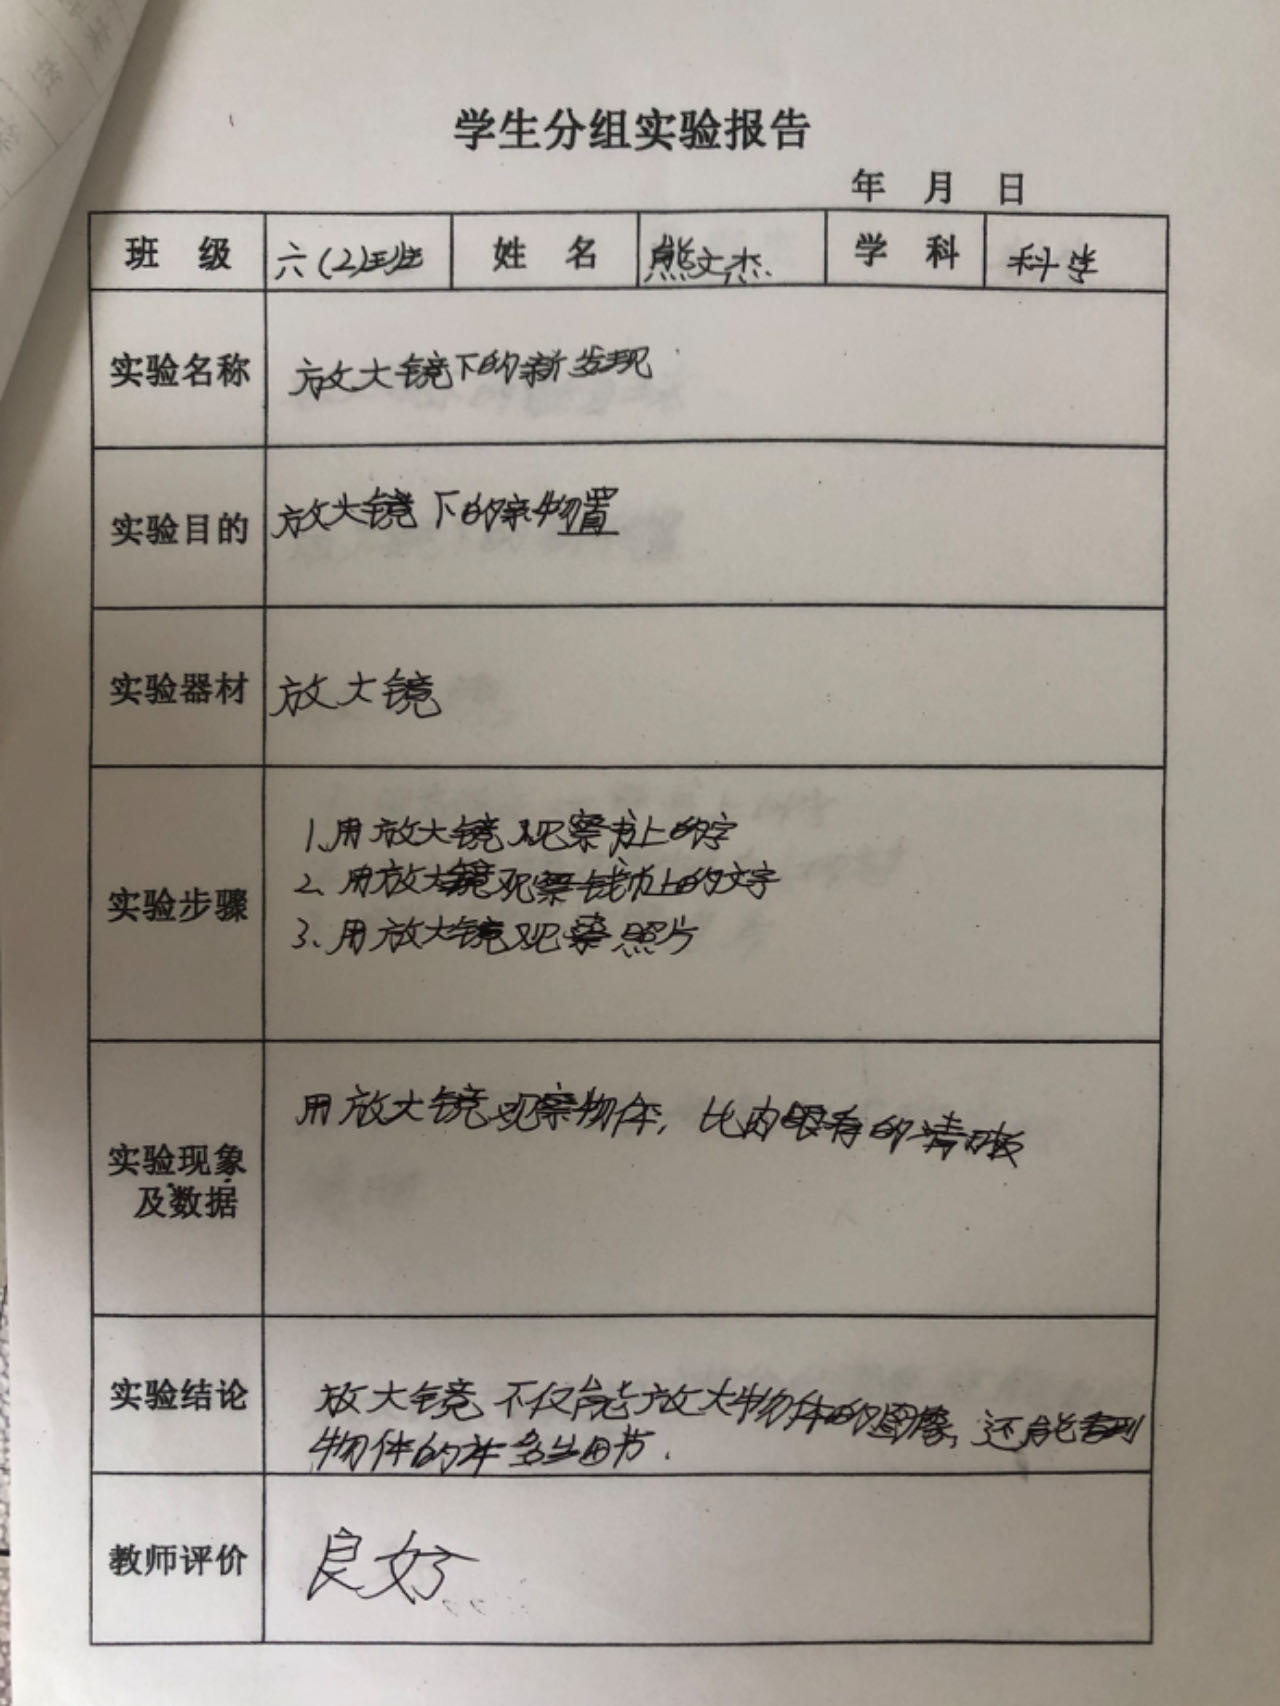 学生分组实验报告
年 月 日
班 级 六(2)班 姓 名 熊文杰 学 科 科学
实验名称 放大镜下的新发现
实验目的 放大镜下的
实验器材 放大镜
实验步骤
1、用放大镜观察书上的字
2、用放大镜观察钱币上的文字
3、用放大镜观察照片
实验现象
及数据
用放大镜观察物体，比肉眼看的清
实验结论
放大镜不仅能放大物体的图像，还能看到
物体的许多细节．
教师评价 良好